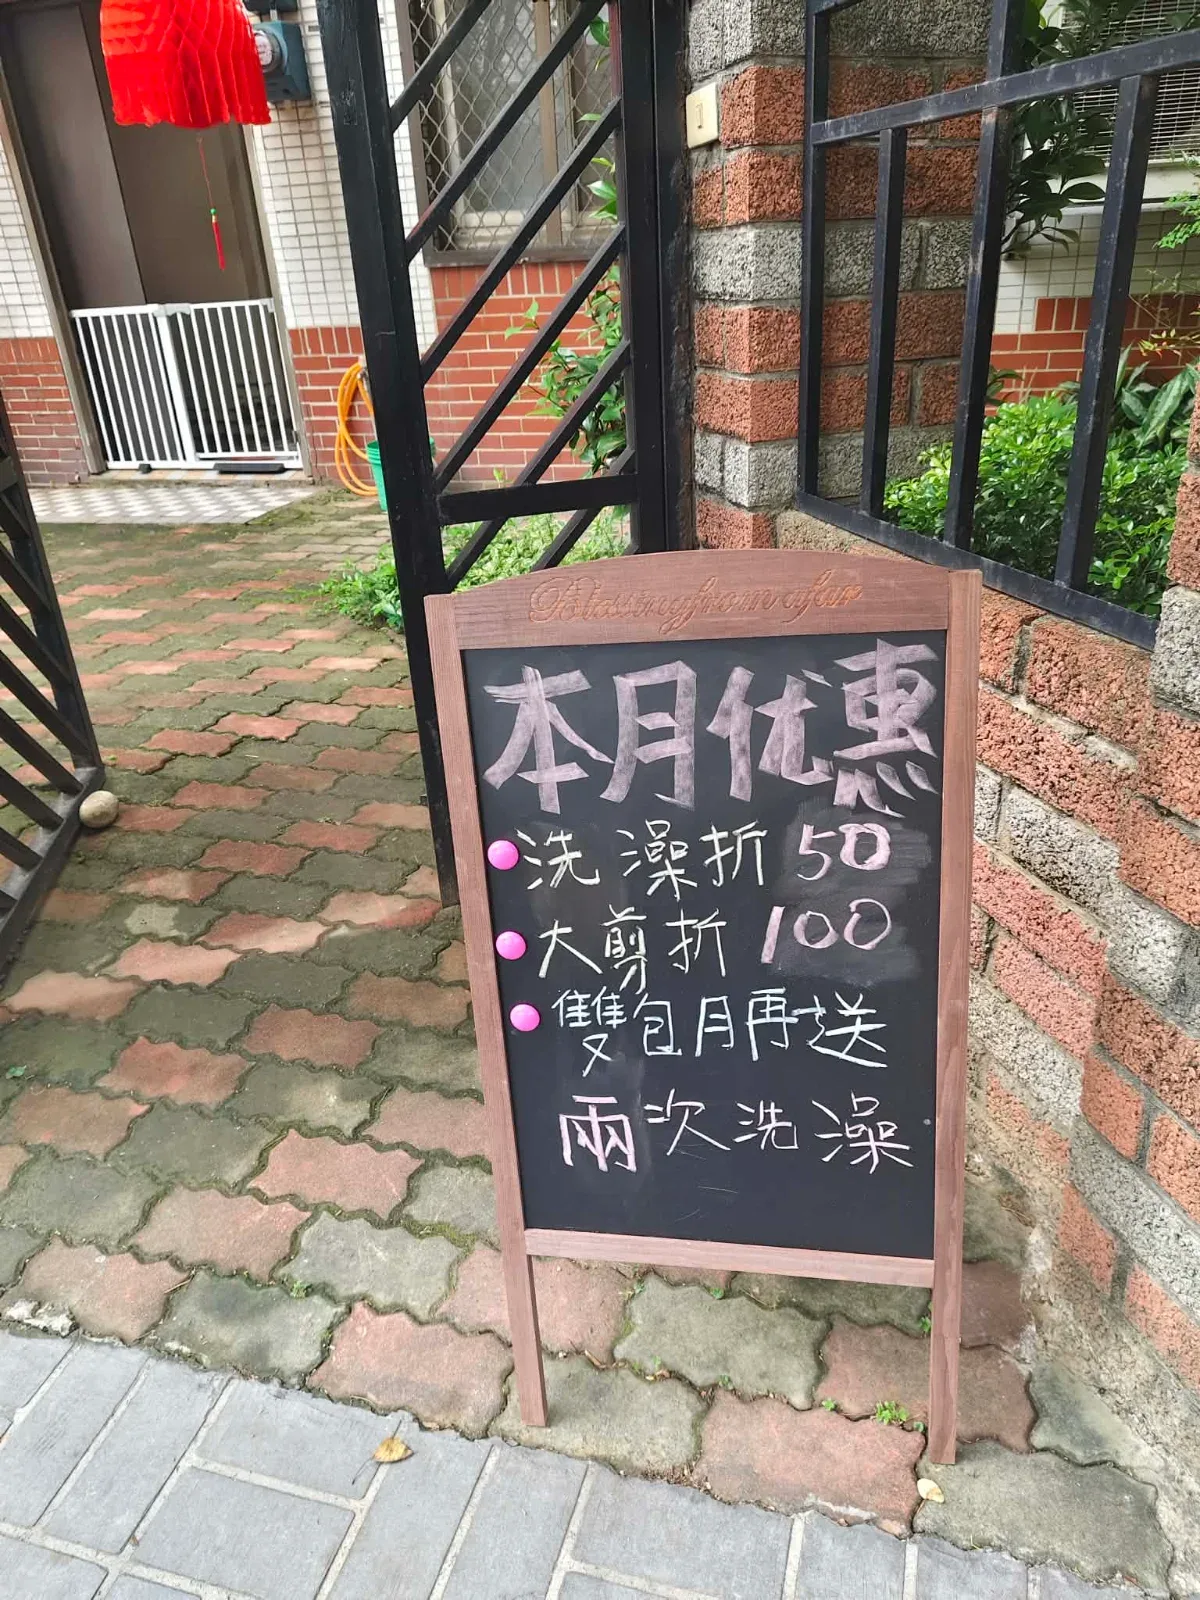 Blessing from afar
本月优惠
洗澡折50
大剪折100
雙包月再送
兩次洗澡